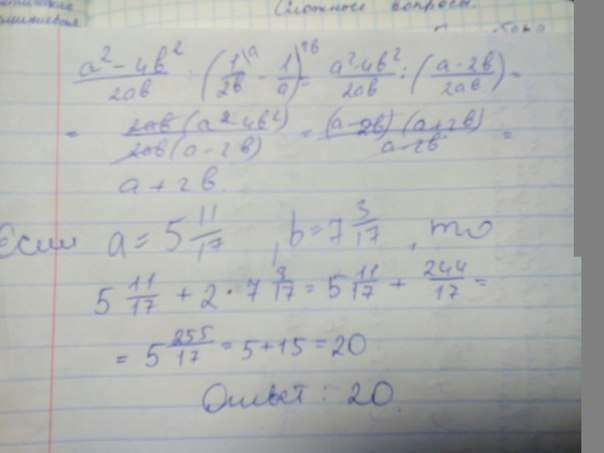 Сложные вопросы.
(a² - 4b²)/2ab : (1/2b \a - 1/a \2b) = (a²-4b²)/2ab : ((a-2b)/2ab) =
= 2ab(a²-4b²)/2ab(a-2b) = (a-2b)(a+2b)/a-2b =
a+2b.
Если a = 5 11/17, b = 7 3/17, то
5 11/17 + 2 · 7 3/17 = 5 11/17 + 244/17 =
= 5 255/17 = 5+15 = 20
Ответ: 20.